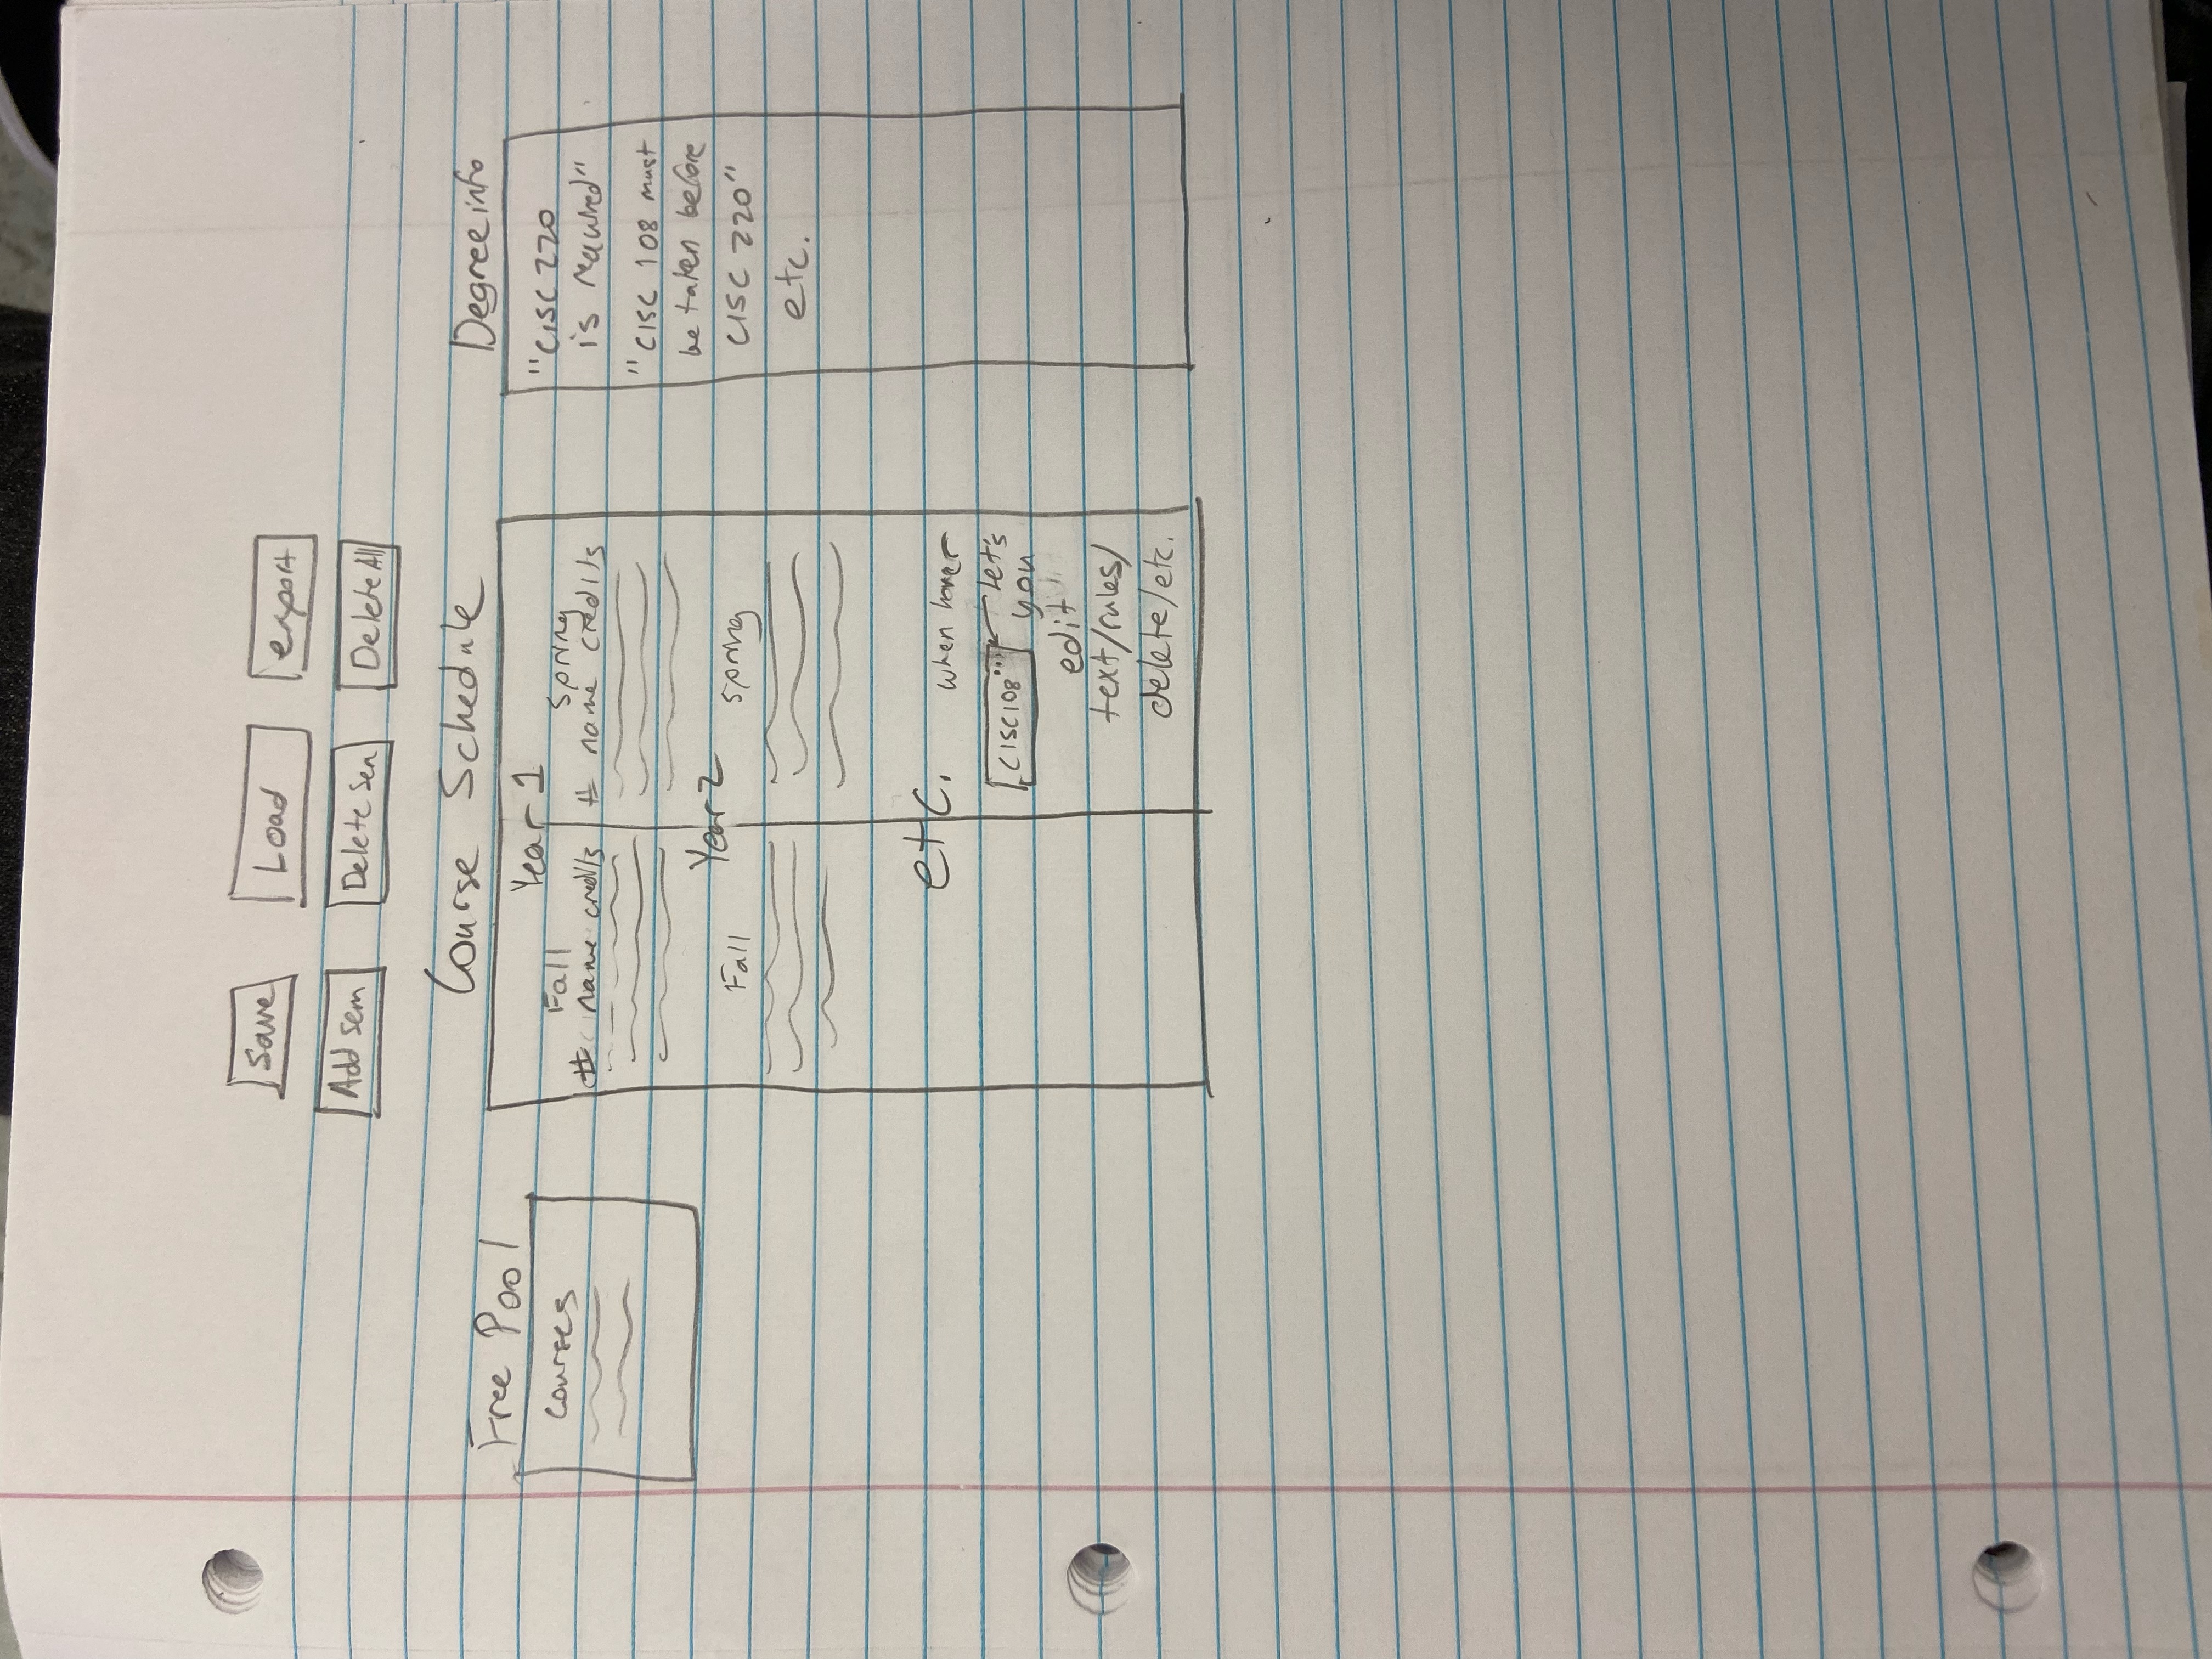 Save Load export
Add Sem Delete Sem Delete All
Course Schedule
Free Pool
courses
Year 1
Fall Spring
# name credits # name credits
Year 2
Fall Spring
etc.
when hover
CISC108 ... let's
you
edit
text/rules/
delete/etc.
Degree info
"CISC 220
is required"
"CISC 108 must
be taken before
CISC 220"
etc.